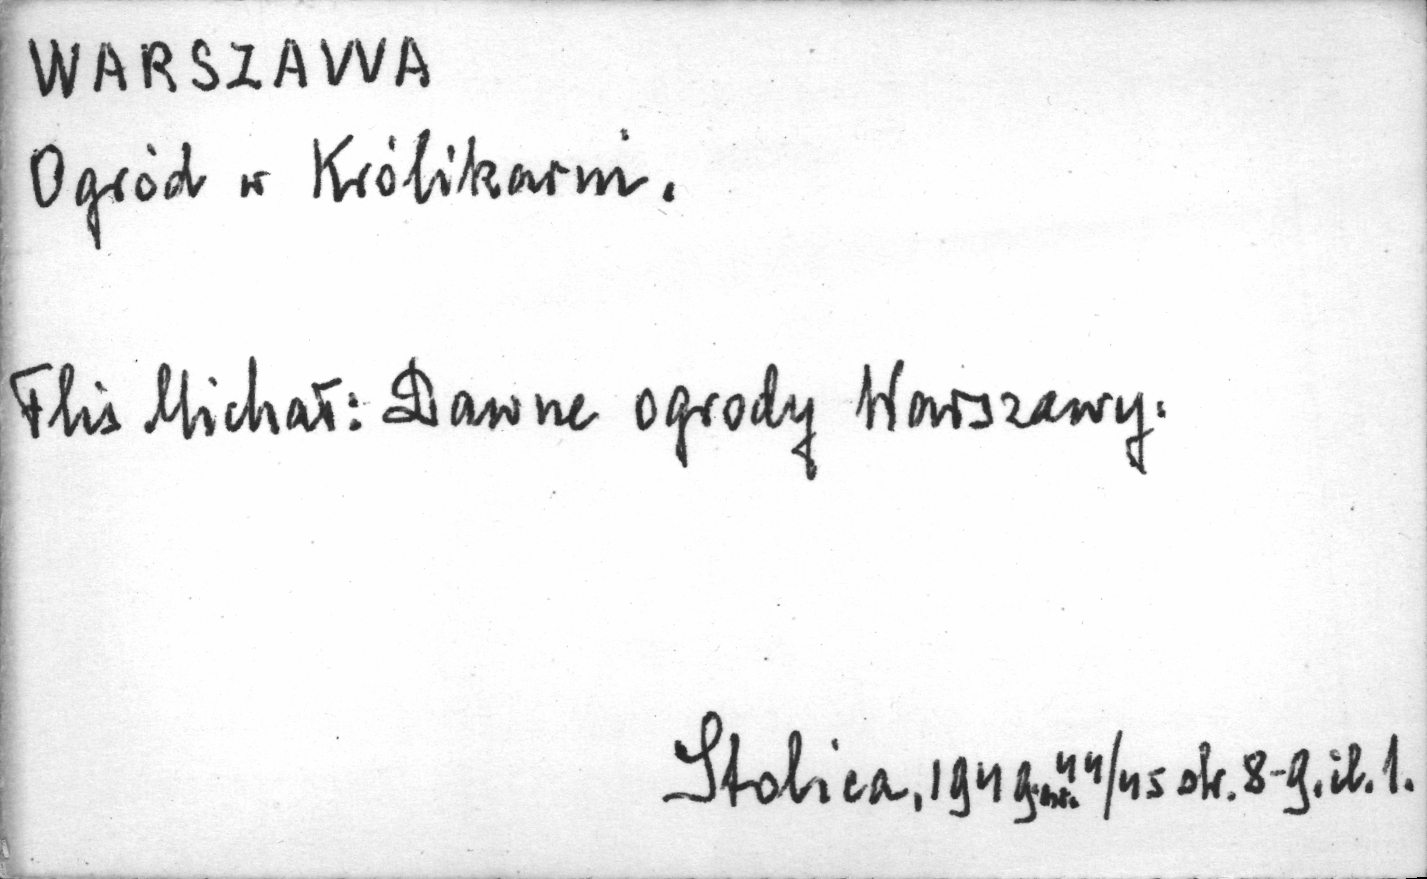 WARSZAWA
Ogród w Królikarni.
Flis Michał: Dawne ogrody Warszawy.
Stolica, 1949. nr. 44/45 str. 8-9. il. 1.